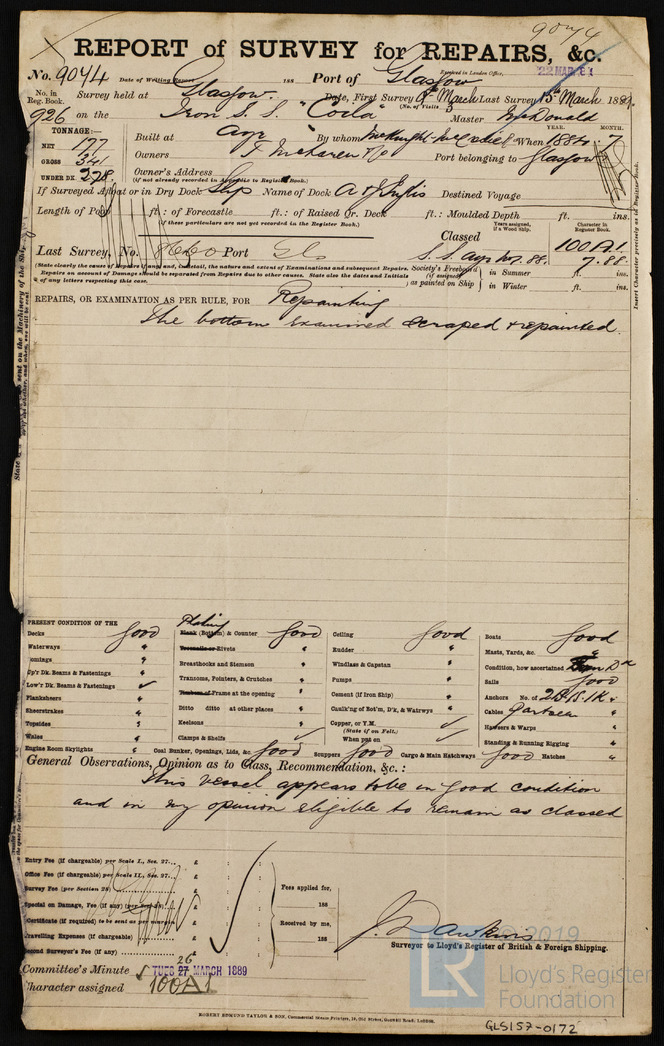 9044
REPORT of SURVEY for REPAIRS, &c.
No. 9044 Date of Writing Report 188 Port of Glasgow Received in London Office, 22 MAR 89
No. in Reg. Book. Survey held at Glasgow. Date, First Survey 9th March Last Survey 15th March 1889.
(No. of Visits
926 on the Iron S. S. "Coila" Master McDonald
TONNAGE:— YEAR. MONTH.
NET 177 Built at Ayr By whom McKnight McCredie When 1884 7
GROSS 341 Owners T McLaren & Co Port belonging to Glasgow
UNDER DK. 278 Owner's Address
(if not already recorded in Appendix to Register Book.)
If Surveyed Afloat or in Dry Dock Slip Name of Dock A & J Inglis Destined Voyage
Length of Poop ft.: of Forecastle ft.: of Raised Qr. Deck ft.: Moulded Depth ft. ins.
(if these particulars are not yet recorded in the Register Book.) Years assigned, if a Wood Ship. Character in Register Book.
Classed 100A1.
Last Survey, No. 8660 Port Gls S.S. Ayr No1. 88. 7.88.
Society's Freeboard (if assigned) as painted on Ship in Summer ft. ins.
in Winter ft. ins.
REPAIRS, OR EXAMINATION AS PER RULE, FOR Repainting
The bottom examined scraped & repainted.
PRESENT CONDITION OF THE
Decks Good
Waterways "
Comings "
Up'r Dk. Beams & Fastenings "
Low'r Dk. Beams & Fastenings
Planksheers "
Sheerstrakes "
Topsides "
Wales "
Engine Room Skylights "
Plating
Plank (Bottom) & Counter Good
Treenails or Rivets "
Breasthooks and Stemson "
Transoms, Pointers, & Crutches "
Timbers of Frame at the opening "
Ditto ditto at other places "
Keelsons "
Clamps & Shelfs
Coal Bunker, Openings, Lids, &c. Good
Ceiling Good
Rudder "
Windlass & Capstan "
Pumps "
Cement (if Iron Ship) "
Caulk'ng of Bot'm, D'k, & Watrwys "
Copper, or Y.M. (State if on Felt.)
When put on
Scuppers Good Cargo & Main Hatchways Good Hatches "
Boats Good
Masts, Yards, &c. "
Condition, how ascertained
Sails Good
Anchors No. of 2B.1S.1K "
Cables Gartsea
Hawsers & Warps "
Standing & Running Rigging "
General Observations, Opinion as to Class, Recommendation, &c.:
This vessel appears to be in good condition
and in my opinion eligible to remain as classed
Entry Fee (if chargeable) per Scale I., Sec. 27... £
Office Fee (if chargeable) per Scale II., Sec. 27... £
Survey Fee (per Section 28) £
Special on Damage, Fee (if any) £
Certificate (if required) to be sent as per margin £
Travelling Expenses (if chargeable) £
Second Surveyor's Fee (if any) £
Fees applied for,
188
Received by me,
188
J. Dawkins
Surveyor to Lloyd's Register of British & Foreign Shipping.
26
Committee's Minute TUES 27 MARCH 1889
Character assigned 100A1
2019
LR
Lloyd's Register
Foundation
GLS157-0172